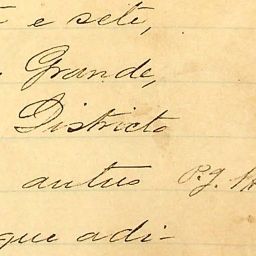 e sete,
Grande,
Districto
antes P.J.
que adi-